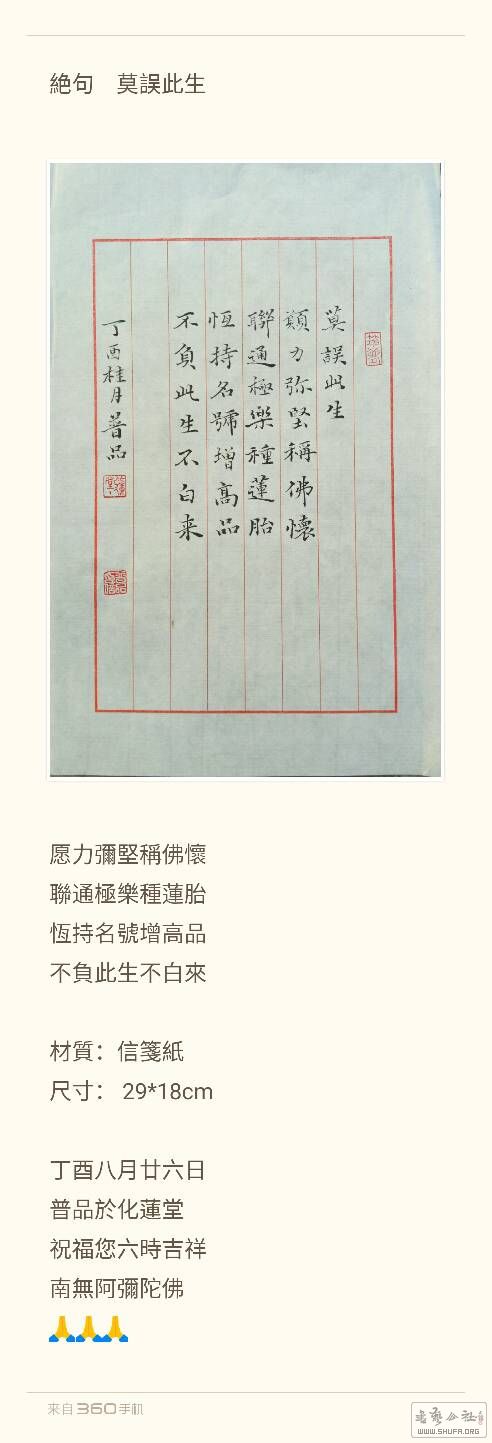 絕句　莫誤此生
莫誤此生
願力弥堅稱佛懷
聯通極樂種蓮胎
恆持名號增高品
不負此生不白来
丁酉桂月普品
愿力彌堅稱佛懷
聯通極樂種蓮胎
恆持名號增高品
不負此生不白來
材質：信箋紙
尺寸： 29*18cm
丁酉八月廿六日
普品於化蓮堂
祝福您六時吉祥
南無阿彌陀佛
🙏🙏🙏
来自360手机
WWW.SHUFA.ORG